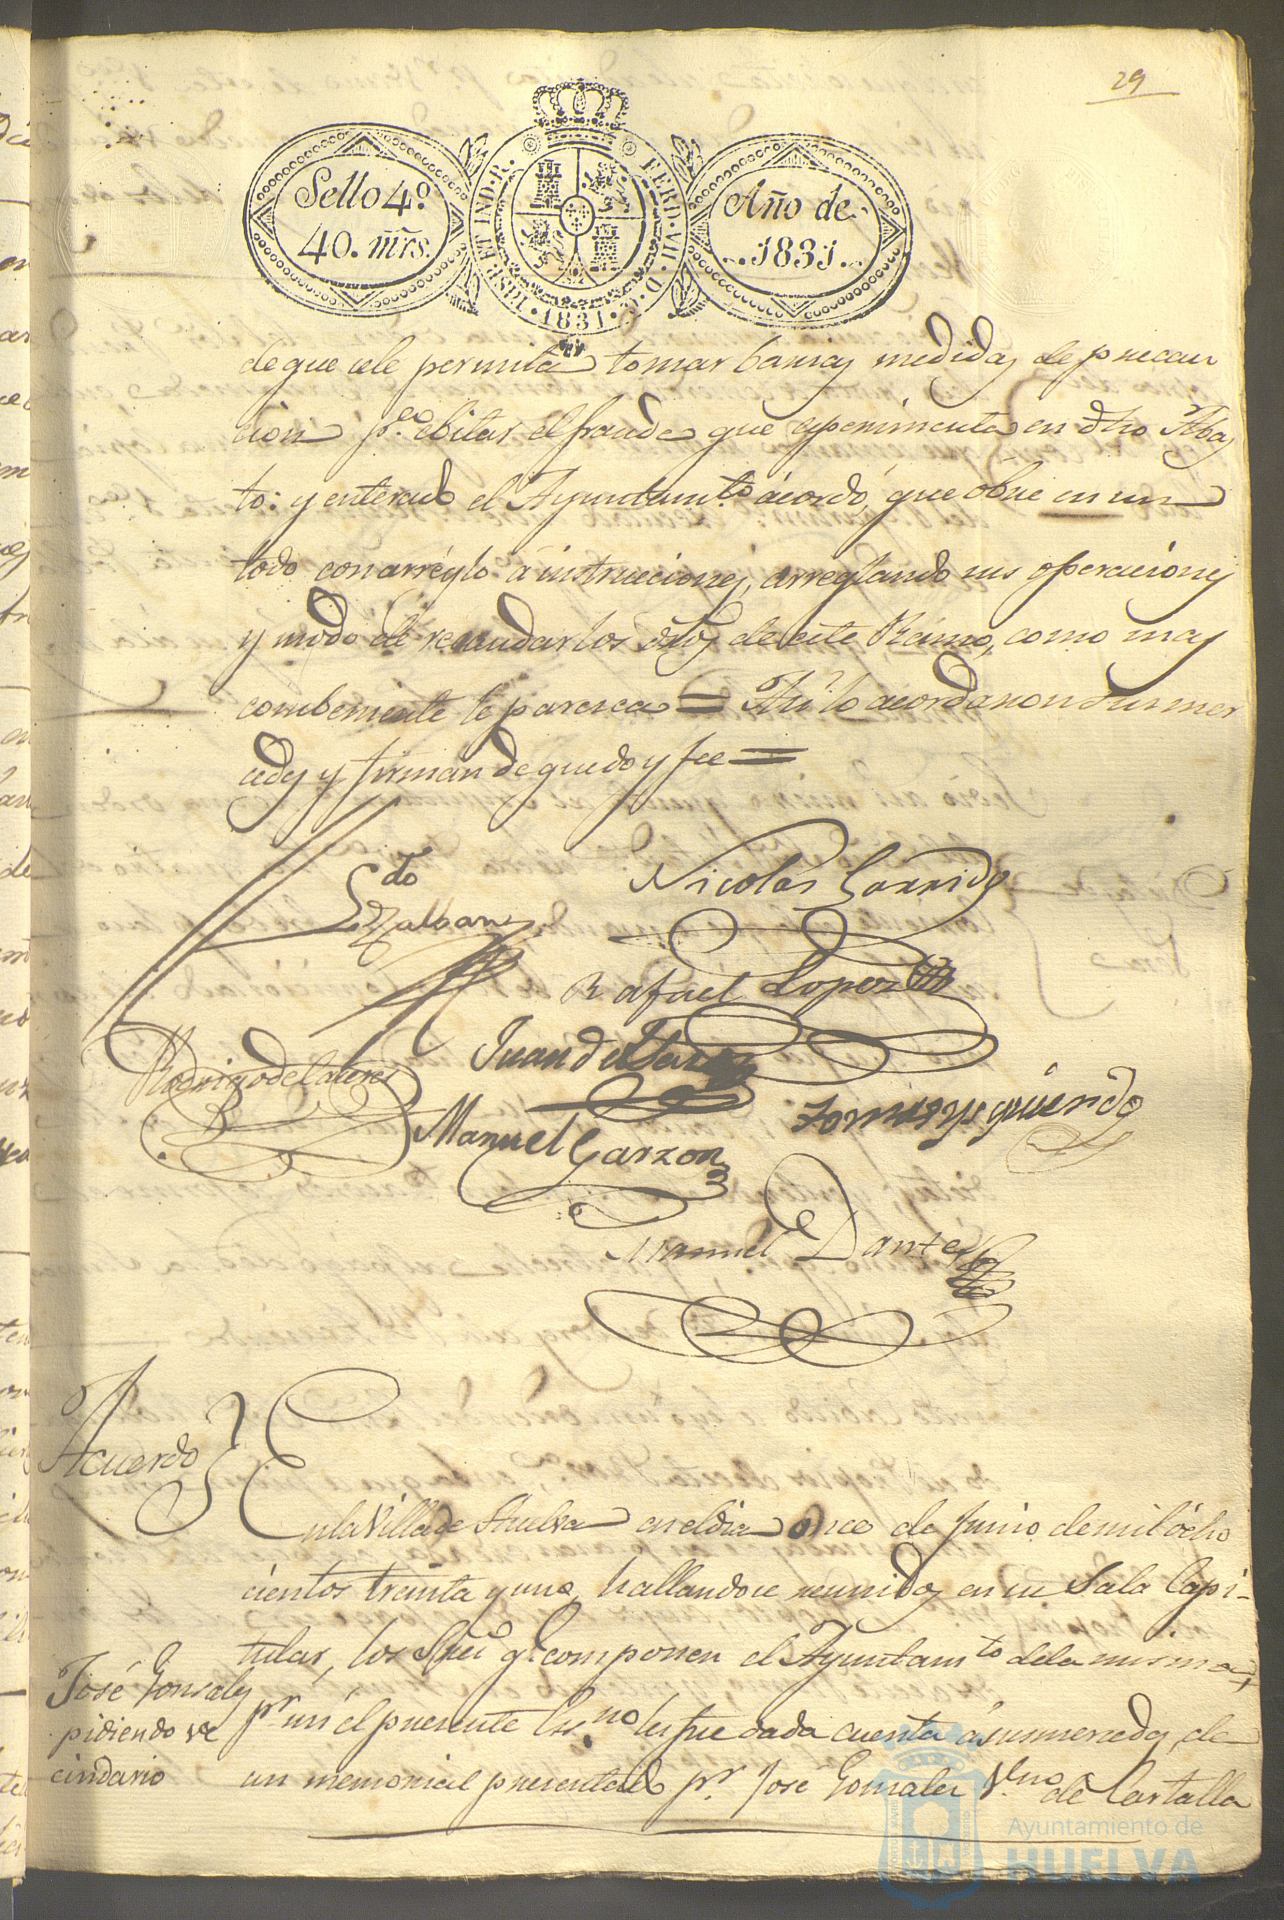 29
Sello 4º
40. mrs.
HISP. ET IND. R.
FERD. VII. D. G.
1831
Año de
1831.
de que se le permita tomar barias medidas de precau
cion pª. ebitar el fraude que esperimenta en dho Abas
to: y enterado el Ayuntamto. acordó, que obre en un
todo con arréglo á instrucciones, arreglando sus operaciones
y modo de recaudar los dros de este Ramo, como mas
combeniente le paresca = Asi lo acordaron sus mer
cedes y firman de que doy fee =
Nicolás Garrido
Rafael Lopez
Juan de
Manuel Garzon
Tomás Ysquierdo
Manuel Dantes
Acuerdo
En la Villa de Huelva en el dia once de Junio de mil ócho
cientos treinta y uno, hallandose reunidos en su Sala Capi-
tular, los Sres. qe. componen el Ayuntamto. de la misma,
José Gonzales
pidiendo ve
cindario
pr. mi el presente Esno. les fue dada cuenta á sus mercedes, de
un memorial presentado pr. José Gonzales Vno. de Castalla
Ayuntamiento de
HUELVA